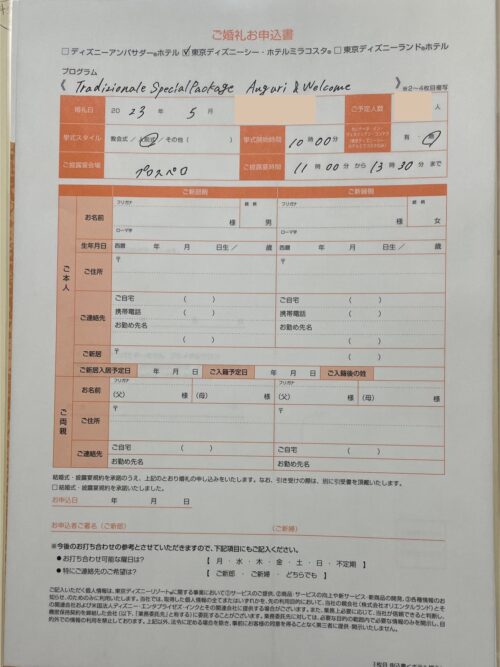 ご婚礼お申込書
□ディズニーアンバサダー®ホテル ☑東京ディズニーシー・ホテルミラコスタ® □東京ディズニーランド®ホテル
プログラム
《 Tradizionale Special Package Auguri & Welcome 》※2～4枚目複写
婚礼日 2023年 5月 ご予定人数 人
挙式スタイル 教会式／人前式／その他（ ） 挙式開始時間 10時00分 有・無
ご披露宴会場 プロスペロ ご披露宴時間 11時00分から13時30分まで
ご新郎側 ご新婦側
ご本人
お名前 フリガナ 続柄 様 男 フリガナ 続柄 様 女
ローマ字 ローマ字
生年月日 西暦 年 月 日生／ 歳 西暦 年 月 日生／ 歳
ご住所 〒 〒
ご連絡先 ご自宅（ ） ご自宅（ ）
携帯電話（ ） 携帯電話（ ）
お勤め先名 お勤め先名
（ ） （ ）
ご新居 〒
ご新居入居予定日 年 月 日 ご入籍予定日 年 月 日 ご入籍後の姓
ご両親
お名前 フリガナ （父） 様 （母） 様 フリガナ （父） 様 （母） 様
ご住所 〒 〒
ご連絡先 ご自宅（ ） ご自宅（ ）
お勤め先名 お勤め先名
結婚式・披露宴規約を承諾のうえ、上記のとおり婚礼の申し込みをいたします。なお、引き受けの際は、別に引受書を頂戴いたします。
□結婚式・披露宴規約を承諾いたしました。
お申込日 年 月 日
お申込者ご署名（ご新郎） （ご新婦）
※今後のお打ち合わせの参考とさせていただきますので、下記項目にもご記入ください。
●お打ち合わせ可能な曜日は？ 【 月・火・水・木・金・土・日・不定期 】
●特にご連絡先のご希望は？ 【 ご新郎・ご新婦・どちらでも 】